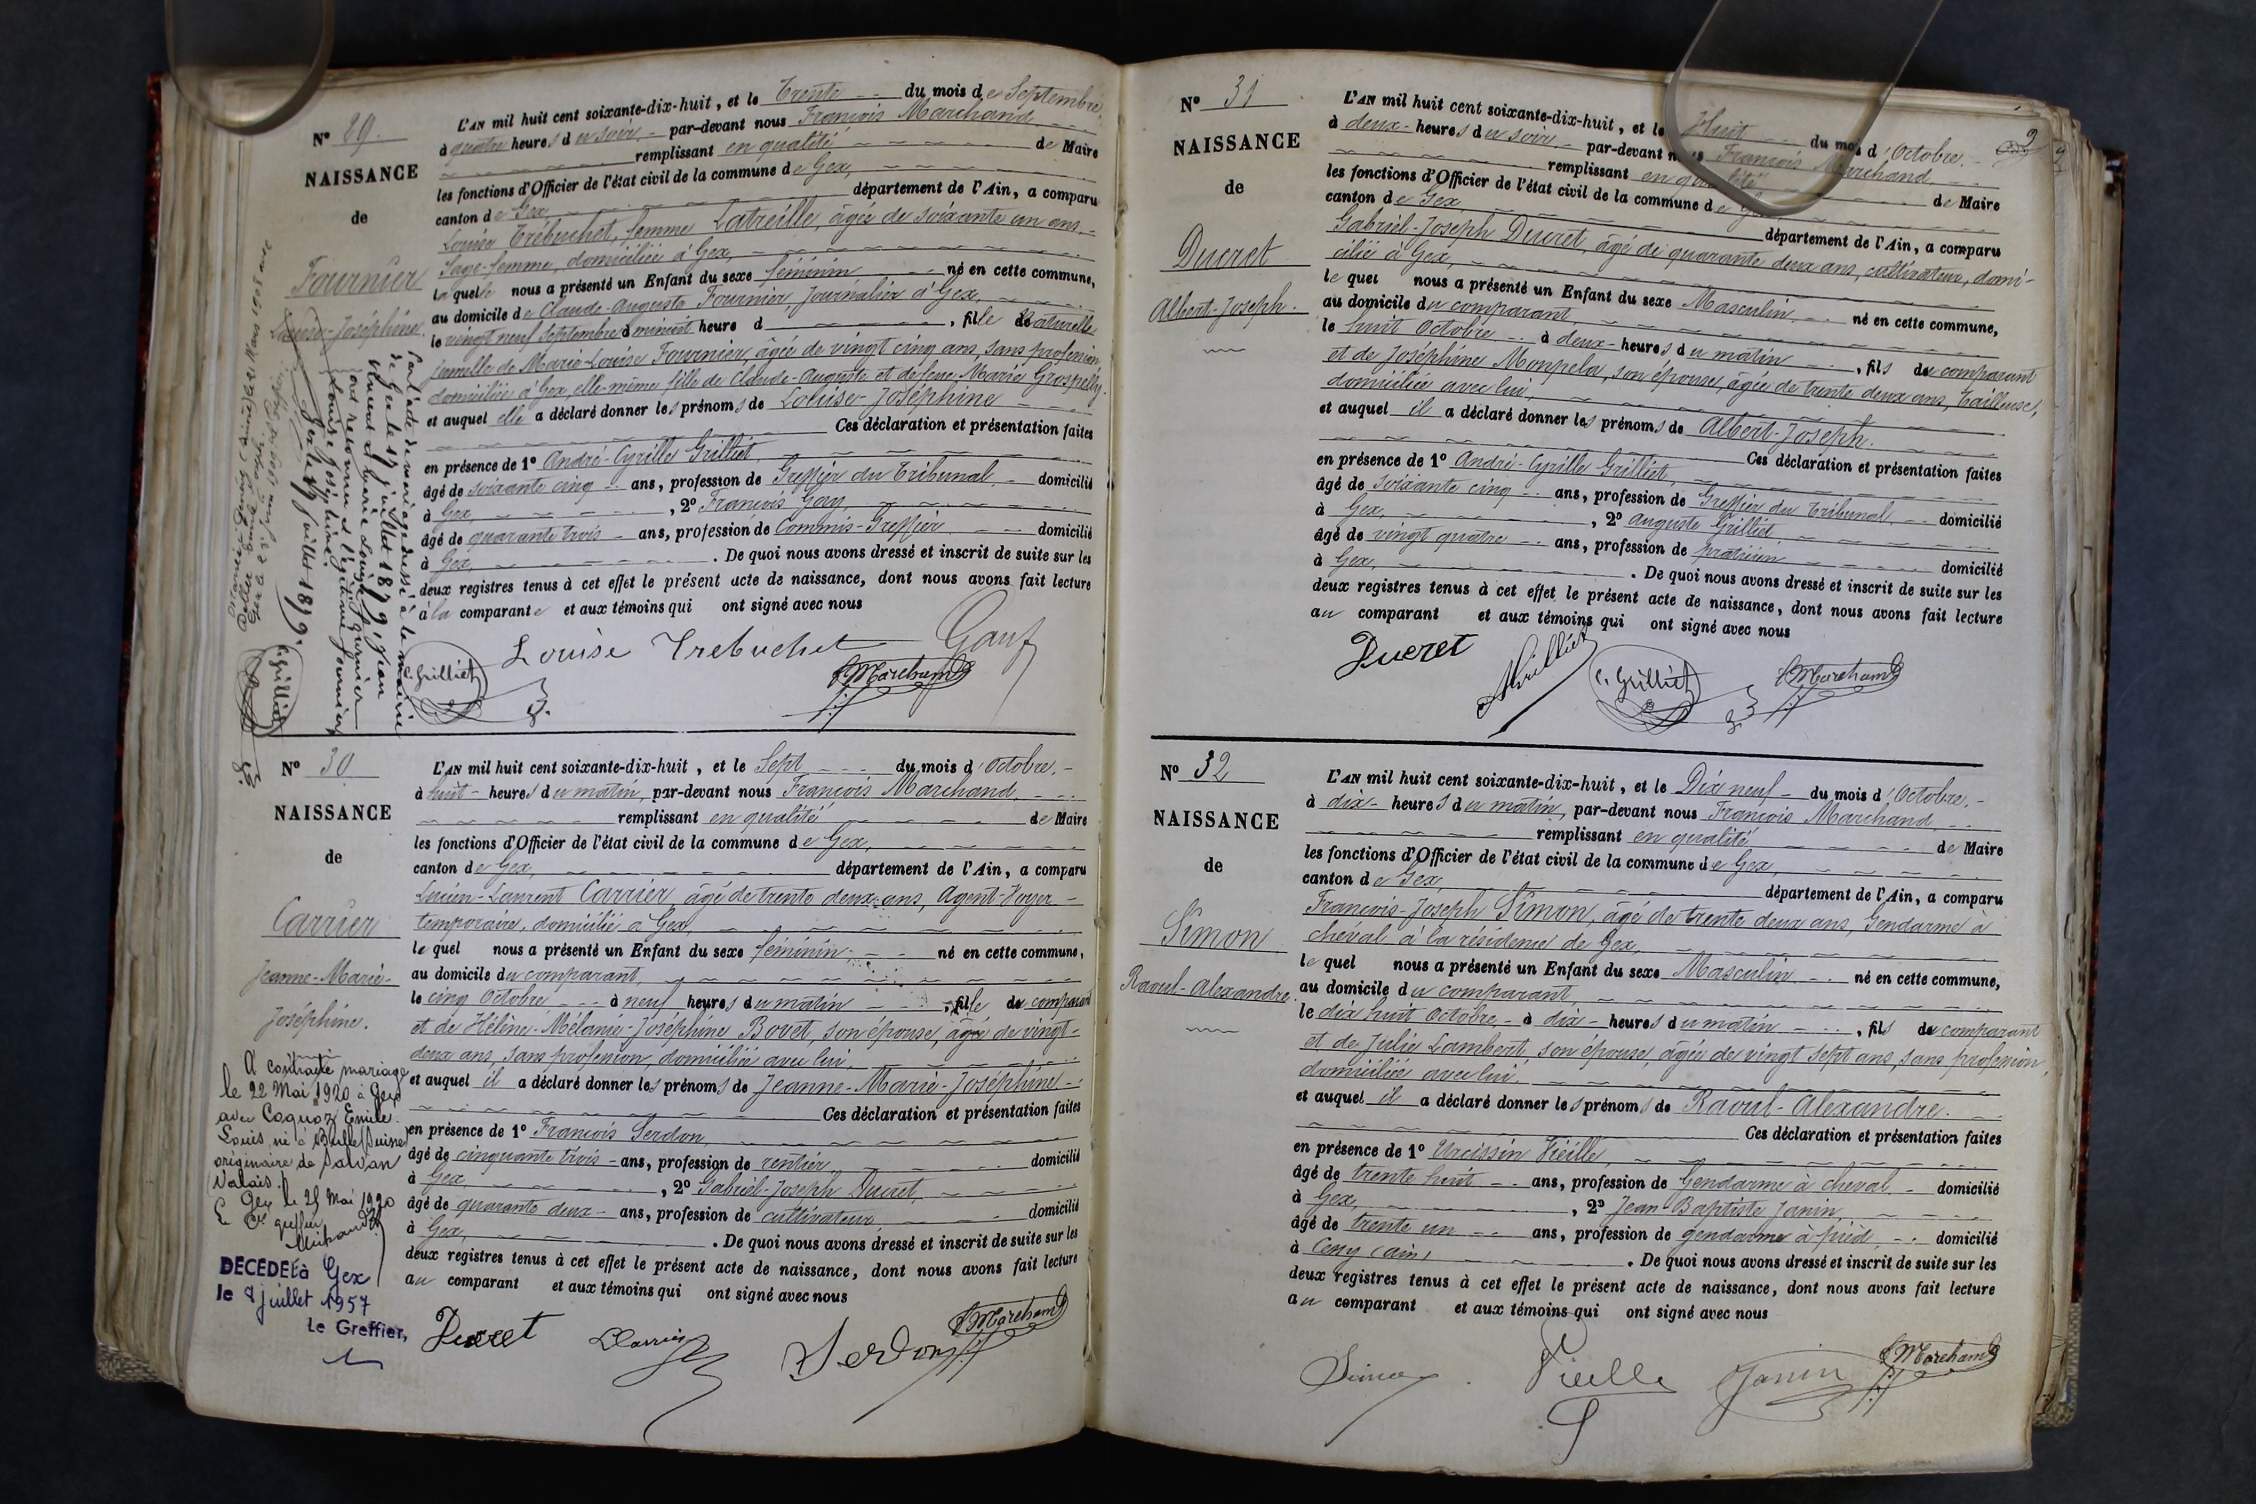 N° 29.
NAISSANCE
de
Fournier
Louise-Joséphine.
L'AN mil huit cent soixante-dix-huit, et le Trente du mois de Septembre,
à quatre heures du soir par-devant nous François Marchand
remplissant en qualité de Maire
les fonctions d'Officier de l'état civil de la commune de Gex,
canton de Gex, département de l'Ain, a comparu
Louise Trébuchet, femme Latreille, âgée de soixante un ans,
Sage-femme, domiciliée à Gex,
laquelle nous a présenté un Enfant du sexe féminin né en cette commune,
au domicile de Claude-Auguste Fournier, Journalier à Gex,
le vingt neuf Septembre à minuit heure d , fille naturelle
jumelle de Marie-Louise Fournier, âgée de vingt cinq ans, sans profession,
domiciliée à Gex, elle-même fille de Claude-Auguste et de feue Marie
et auquel elle a déclaré donner les prénoms de Louise-Joséphine
Ces déclaration et présentation faites
en présence de 1° André-Cyrille Grilliet,
âgé de soixante cinq ans, profession de Greffier du Tribunal domicilié
à Gex, , 2° François
âgé de quarante trois ans, profession de Commis-Greffier domicilié
à Gex, . De quoi nous avons dressé et inscrit de suite sur les
deux registres tenus à cet effet le présent acte de naissance, dont nous avons fait lecture
à la comparante et aux témoins qui ont signé avec nous
Louise Trebuchet
C. Grilliet
F. Marchand
Par l'acte de mariage dressé à la mairie
de Gex le 17 juillet 1879, Jean
et Marie Louise Fournier
ont reconnu et légitimé
Louise Joséphine
Gex le juillet 1879.
C. Grilliet
N° 30
NAISSANCE
de
Carrier
Jeanne-Marie-
Joséphine.
A contracté mariage
le 22 Mai 1920 à Gex
avec Coquoz Emile
Louis né à Bulle (Suisse)
originaire de Salvan
(Valais).
Gex le 25 Mai 1920
Le Cis greffier
DECEDEE à Gex
le 8 juillet 1957
Le Greffier,
L'AN mil huit cent soixante-dix-huit, et le Sept du mois d'Octobre,
à huit heures du matin, par-devant nous François Marchand
remplissant en qualité de Maire
les fonctions d'Officier de l'état civil de la commune de Gex,
canton de Gex, département de l'Ain, a comparu
Lucien-Laurent Carrier, âgé de trente deux ans, Agent-Voyer
temporaire, domicilié à Gex,
lequel nous a présenté un Enfant du sexe féminin né en cette commune,
au domicile du comparant,
le cinq Octobre à neuf heures du matin , fille du comparant
et de Hélène-Mélanie-Joséphine Bovet, son épouse, âgée de vingt-
deux ans, sans profession, domiciliée avec lui,
et auquel il a déclaré donner les prénoms de Jeanne-Marie-Joséphine
Ces déclaration et présentation faites
en présence de 1° François Serdon,
âgé de cinquante trois ans, profession de rentier, domicilié
à Gex, , 2° Gabriel-Joseph Ducret,
âgé de quarante deux ans, profession de cultivateur, domicilié
à Gex, . De quoi nous avons dressé et inscrit de suite sur les
deux registres tenus à cet effet le présent acte de naissance, dont nous avons fait lecture
au comparant et aux témoins qui ont signé avec nous
Ducret
L Carrier
Serdon
F. Marchand
N° 31
NAISSANCE
de
Ducret
Albert-Joseph.
L'AN mil huit cent soixante-dix-huit, et le Huit du mois d'Octobre,
à deux heures du soir par-devant nous François Marchand
remplissant en qualité de Maire
les fonctions d'Officier de l'état civil de la commune de Gex
canton de Gex, département de l'Ain, a comparu
Gabriel-Joseph Ducret, âgé de quarante deux ans, cultivateur, domi-
cilié à Gex,
lequel nous a présenté un Enfant du sexe Masculin né en cette commune,
au domicile du comparant
le huit Octobre à deux heures du matin , fils du comparant
et de Joséphine Monpela, son épouse, âgée de trente deux ans, tailleuse,
domiciliée avec lui,
et auquel il a déclaré donner les prénoms de Albert-Joseph.
Ces déclaration et présentation faites
en présence de 1° André-Cyrille Grilliet,
âgé de soixante cinq ans, profession de Greffier du Tribunal, domicilié
à Gex, , 2° Auguste Grilliet,
âgé de vingt quatre ans, profession de praticien domicilié
à Gex, . De quoi nous avons dressé et inscrit de suite sur les
deux registres tenus à cet effet le présent acte de naissance, dont nous avons fait lecture
au comparant et aux témoins qui ont signé avec nous
Ducret
A Grilliet
C. Grilliet
F. Marchand
N° 32
NAISSANCE
de
Simon
Raoul-Alexandre.
L'AN mil huit cent soixante-dix-huit, et le Dix neuf du mois d'Octobre,
à dix heures du matin, par-devant nous François Marchand
remplissant en qualité de Maire
les fonctions d'Officier de l'état civil de la commune de Gex,
canton de Gex, département de l'Ain, a comparu
François-Joseph Simon, âgé de trente deux ans, Gendarme à
cheval à la résidence de Gex,
lequel nous a présenté un Enfant du sexe Masculin né en cette commune,
au domicile du comparant,
le dix huit Octobre à dix heures du matin , fils du comparant
et de Julie Lambert, son épouse, âgée de vingt sept ans, sans profession,
domiciliée avec lui,
et auquel il a déclaré donner les prénoms de Raoul-Alexandre.
Ces déclaration et présentation faites
en présence de 1° Urcissin Vieille,
âgé de trente huit ans, profession de Gendarme à cheval domicilié
à Gex, , 2° Jean-Baptiste Janin,
âgé de trente un ans, profession de gendarme à pied domicilié
à (ain) . De quoi nous avons dressé et inscrit de suite sur les
deux registres tenus à cet effet le présent acte de naissance, dont nous avons fait lecture
au comparant et aux témoins qui ont signé avec nous
Simon
Vieille
Janin
F. Marchand